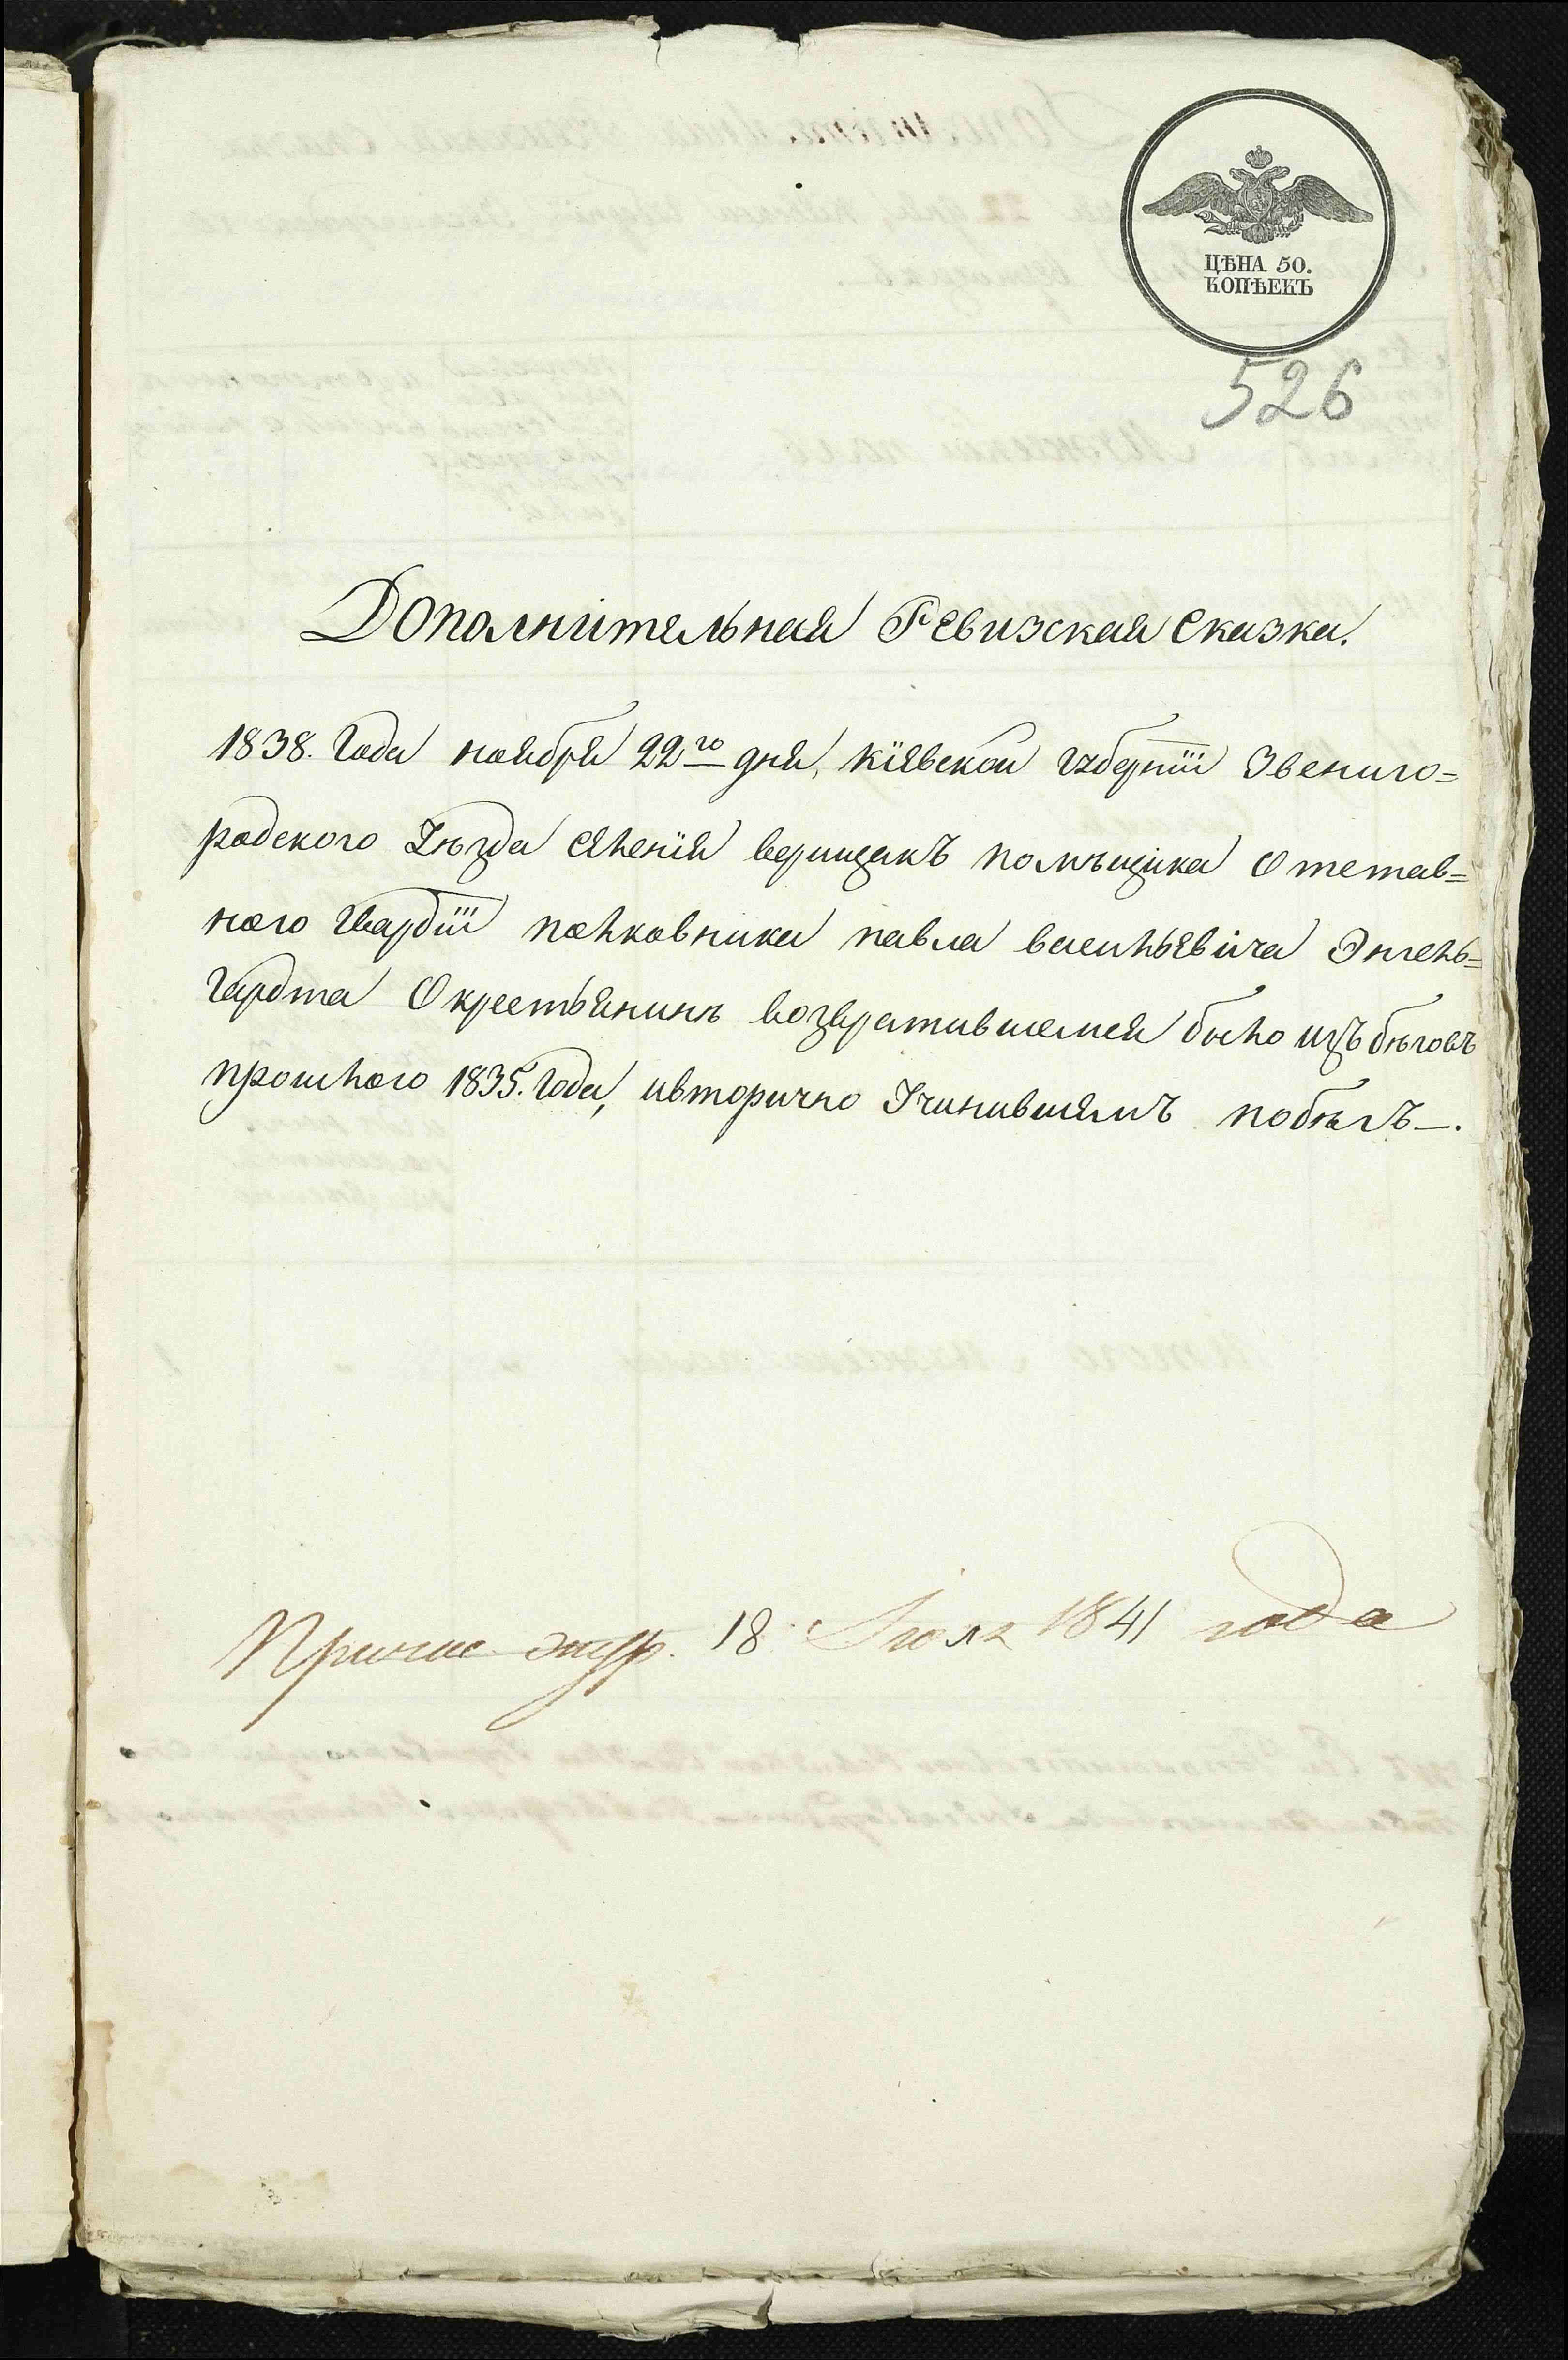 ЦѢНА 50.
КОПѢЕКЪ
526
Дополнительная Ревизская Сказка.
1838. Года ноября 22го дня, Кіевской губерніи Звениго=
родского Уѣзда селенія верищакъ помѣщика Отстав=
ного Гвардіи полковника павла васильевича Энгель=
гардта О крестьянинѣ возвратившемся было изъ бѣговъ
прошлого 1835. Года, и вторично Учинившемъ побѣгъ.
18 Іюля 1841 года